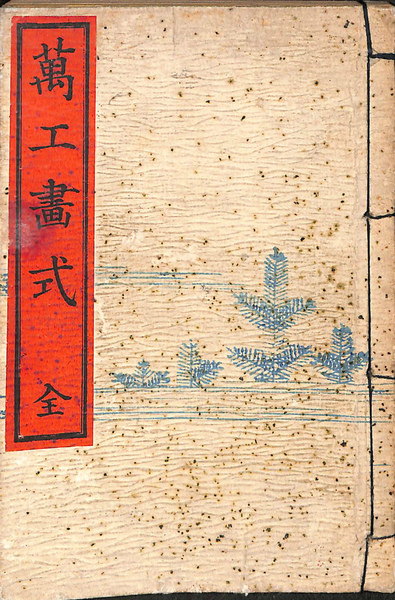 萬工畫式 全